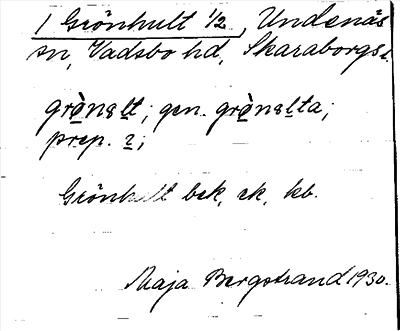 1 Grönhult 1/2, Undenäs
sn, Vadsbo hd, Skaraborgs l.
grò̤nɛḷt; gen. grò̤nɛḷta;
prep. ɪ̤;
Grönhult bek, ek, kb.
Maja Bergstrand 1930.